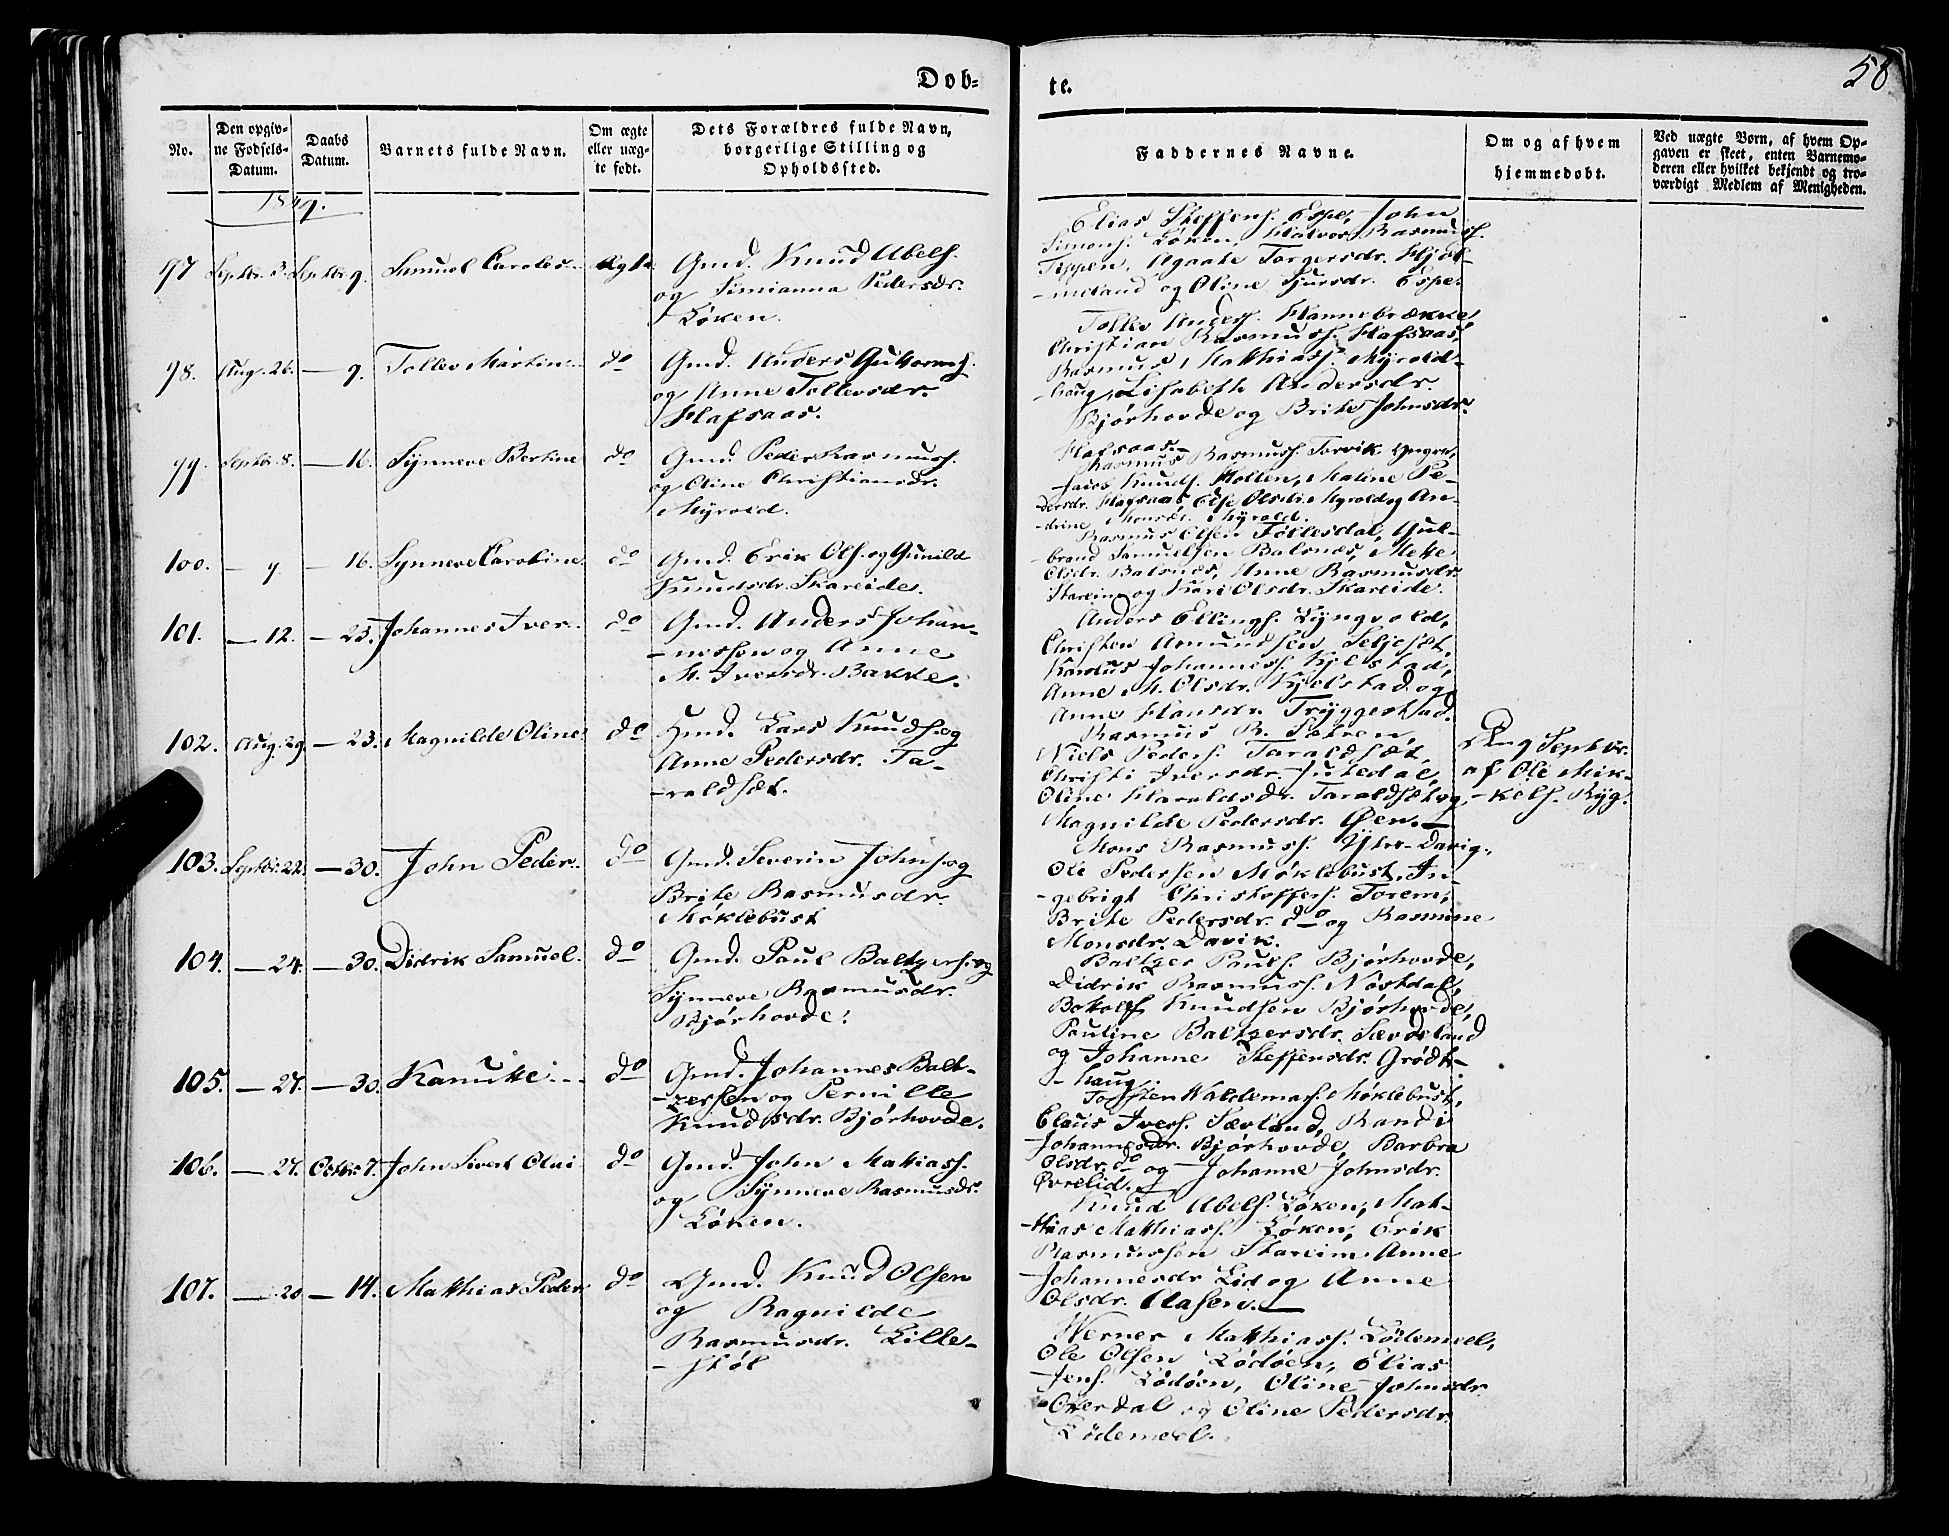 Dob-
te.
58
No.
Den opgiv-
ne Fødsels-
Datum.
Daabs
Datum.
Barnets fulde Navn.
Om ægte
eller uæg-
te født.
Dets Forældres fulde Navn,
borgerlige Stilling og
Opholdssted.
Faddernes Navne.
Om og af hvem
hjemmedøbt.
Ved uægte Børn, af hvem Op-
gaven er skeet, enten Barnemo-
deren eller hvilket bekjendt og tro-
værdigt Medlem af Menigheden.
1849.
97 Septbr. 3. Septbr. 9. Samuel Carolus. Ægte Gmd. Knud Abels.
og Simianna Pedersdr.
Løken.
Elias Steffens. Espe, John
Simons. Løken, Halvor Rasmuss.
Teppen, Agaate Torgersdr. Hjel-
-meland og Oline Sjursdr. Espe.
98. Aug. 26. — 9. Tollev Martin. do Gmd. Anders Guttorms.
og Anne Tollevsdr.
Hafsaas.
Tollev Anders. Hannebrække,
Christian Rasmuss. Hafsaas,
Rasmus Matthiass. Myrold-
-haug, Lisabeth Andersdr.
Bjørhovde og Brite Johnsdr.
Hafsaas.
99. Septbr. 8. — 16. Synneve Bertine do Gmd. Peder Rasmuss.
og Oline Christiansdr.
Myrold.
Rasmus Rasmuss. Torvik yngre,
Knuds. Holten, Maline Pe-
dersdr. Hafsaas, Else Olsdr. Myrold og An-
-drine Monsdr. Myrold.
100. — 9. — 16. Synneve Caroline. do Gmd. Erik Ols. og Gunild
Knudsdr. Skareide.
Rasmus Olsen Føllesdal, Gul-
-brand Samuelsen Balsnæs, Mette
Olsdr. Balsnæs, Anne Rasmusdr.
Stareim og Kari Olsdr. Skareide.
101. — 12. — 23. Johannes Iver. do Gmd. Anders Johan-
-nessen og Anne
M. Iversdr. Bakke.
Anders Ellings. Lyngvold,
Christen Amundsen Seljeset,
Johanness. Kjelstad,
Anne M. Olsdr. Kjelstad og
Anne Hansdr. Tryggestad.
102. Aug. 29. — 23. Magnilde Oline. do Hmd. Lars Knuds. og
Anne Pedersdr. Ta-
-raldset.
Rasmus R. Sahren,
Niels Peders. Taraldset,
Christi Iversdr. Justedal,
Oline Haraldsdr. Taraldset og
Magnilde Pedersdr. Øen. —
Septbr.
af Ole Mik-
-kels. Ryg.
103. Septbr. 22. — 30. John Peder. do Gmd. Severin Johns. og
Brite Rasmusdr.
Møklebust
Mons Rasmuss. Ytre-Davig,
Ole Pedersen Møklebust, In-
-gebrigt Christoffers. Torem,
Brite Pedersdr. do og Rasmine
Monsdr. Davik.
104. — 24. — 30. Didrik Samuel. do Gmd. Paul Baltzers. og
Synneve Rasmusdr.
Bjørhovde.
Baltzer Pauls. Bjørhovde,
Didrik Rasmuss. Nøstdal,
Botolf Knudsen Bjørhovde,
Pauline Baltzersdr. Sævdeland
og Johanne Steffensdr. Grødt-
-haug.
105. — 27. — 30. Kanutte do Gmd. Johannes Balt-
-zersen og Pernille
Knudsdr. Bjørhovde.
Torsten Waldemars. Møklebust,
Claus Ivers. Sævland, Randi
Johannesdr. Bjørhovde, Barbra
Olsdr. do og Johanne Johnsdr.
Øvrelid.
106. — 27. Octbr. 7. John Sivert Olai do Gmd. John Mathiass.
og Synneve Rasmusdr.
Løken.
Knud Abels. Løken, Mat-
-thias Matthiass. Løken, Erik
Rasmussen Stareim Anne
Johannesdr Lid og Anne
Olsdr. Aasen. —
107. — 20 — 14. Matthias Peder do Gmd. Knud Olsen
og Ragnilde
Rasmusdr. Lille-
-støl
Werner Matthiass. Lødemeel,
Ole Olsen Lødøen, Elias
Jens. Lødøen, Oline Johnsdr.
Overdal og Oline Pedersdr.
Lødemeel.